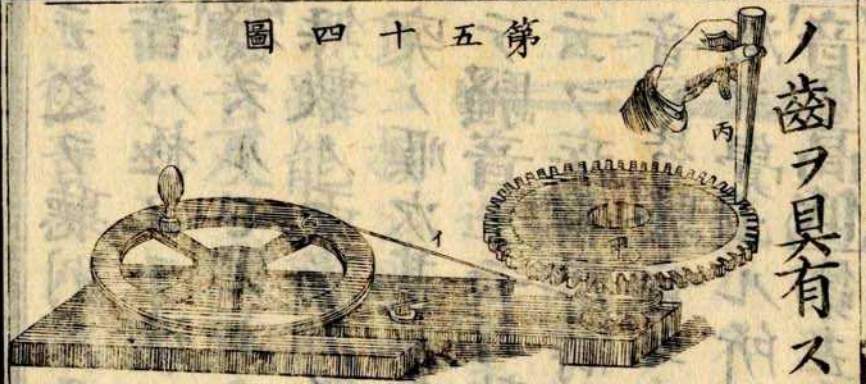 ノ齒ヲ具有ス
第五十四圖
丙
甲
イ